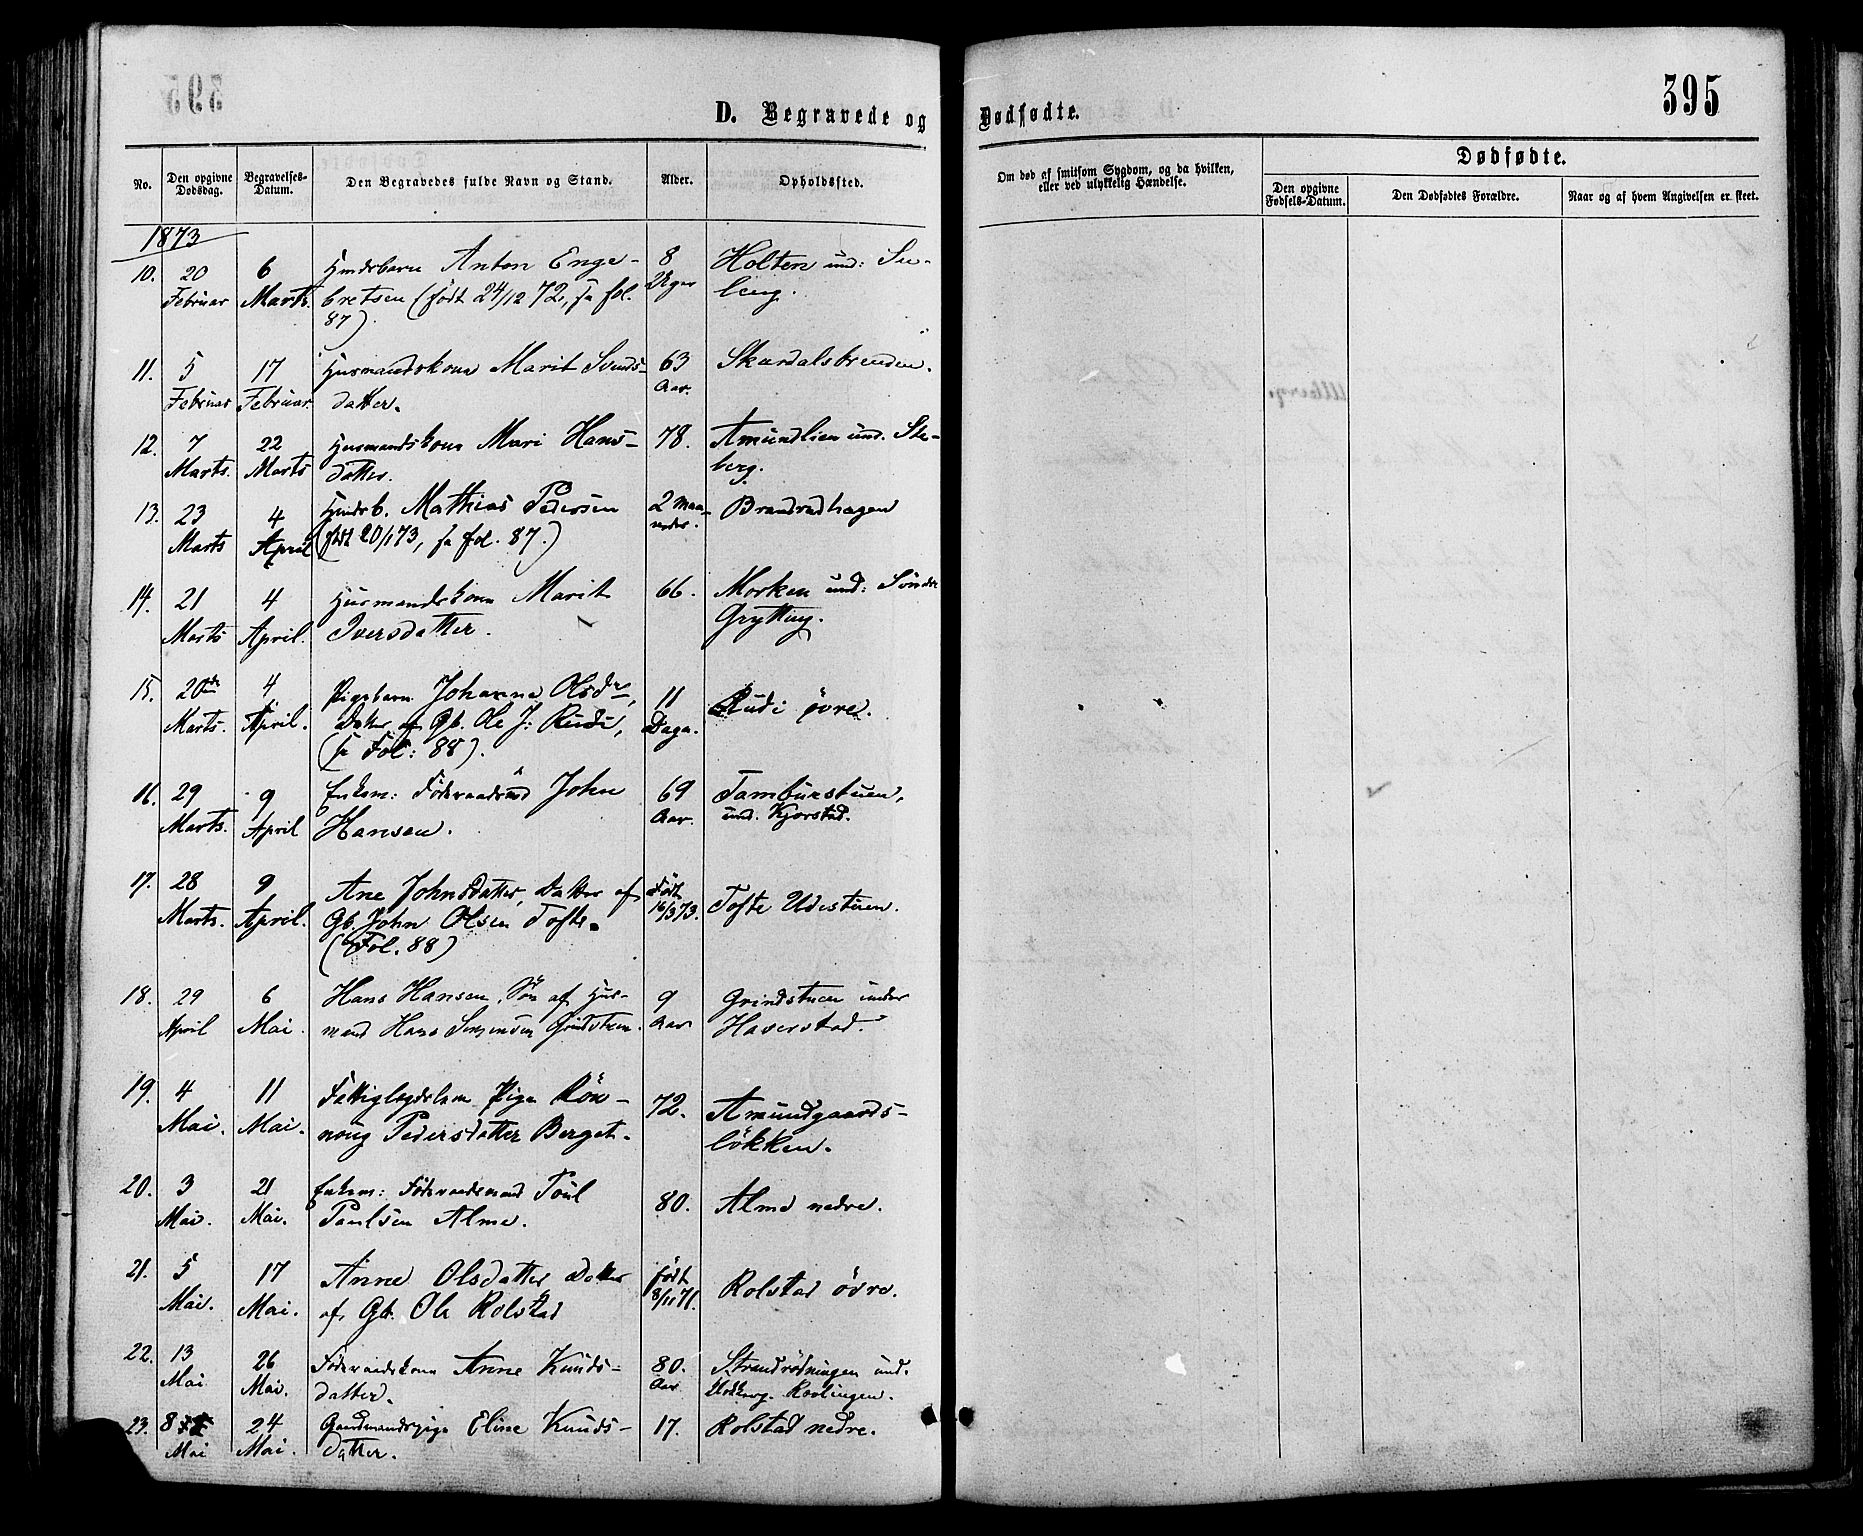 395
D. Begravede og Dødfødte.
No.
Den opgivne Dødsdag.
Begravelses-Datum.
Den Begravedes fulde Navn og Stand.
Alder.
Opholdssted.
Om død af smitsom Sygdom, og da hvilken, eller ved ulykkelig Hændelse.
Dødfødte.
Den opgivne Fødsels-Datum.
Den Dødfødtes Forældre.
Naar og af hvem Angivelsen er skeet.
1873
10. 20 Februar 6 Marts. Anton Enge-
bretsen (født 24/12 72, se fol.
87). 8 Uger Holten und:
11. 5 Februar 17 Februar. Husmandskone Marit Svends-
datter. 63 Aar. Skurdalsbrenden.
12. 7 Marts. 22 Marts Husmandskone Mari Hans-
datter. 78. Amundlien und.
berg.
13. 23 Marts 4 April Mathias Pedersen
(født 20/1 73, se fol. 87.) 2 Maa-
neder. Brandrudhagen
14. 21 Marts 4 April. Husmandskone Marit
Iversdatter. 66. Morken und: Søndre
Grytting.
15. 20de Marts. 4 April. Pigebarn Johanne Olsdr,
Datter af Gb. Ole J: Rudi,
(se Fol: 88). 11 Dage. Rudi övre.
16. 29 Marts. 9 April Enkem: Föderaadsmd John
Hansen. 69 Aar. Tamburstuen,
und. Kjorstad.
17. 28 Marts. 9 April. Ane Johnsdatter, Datter af
Gb. John Olsen Tofte.
(Fol. 88) Født 16/3 73. Tofte Udistuen.
18. 29 April 6 Mai. Hans Hansen, Søn af Hus-
mand Hans Grindstuen. 9 Aar Grindstuen under
Haverstad.
19. 4 Mai. 11 Mai. Pige Rön-
noug Pedersdatter Berget. 72. Amundgaards-
lökken.
20. 3 Mai. 21 Mai. Enkem: Föderaadsmand Poul
Paulsen Alme. 80. Alme nedre.
21. 5 Mai. 17 Mai. Anne Olsdatter Datter
af, Gb. Ole Rolstad født 8/11 71. Rolstad övre.
22. 13 Mai 26 Mai. Föderaadskone Anne Knuds-
datter. 80. Aar Strandrödningen und.
23. 8 Mai 24 Mai. Gaardmandspige Eline Knuds-
datter. 17. Rolstad nedre.